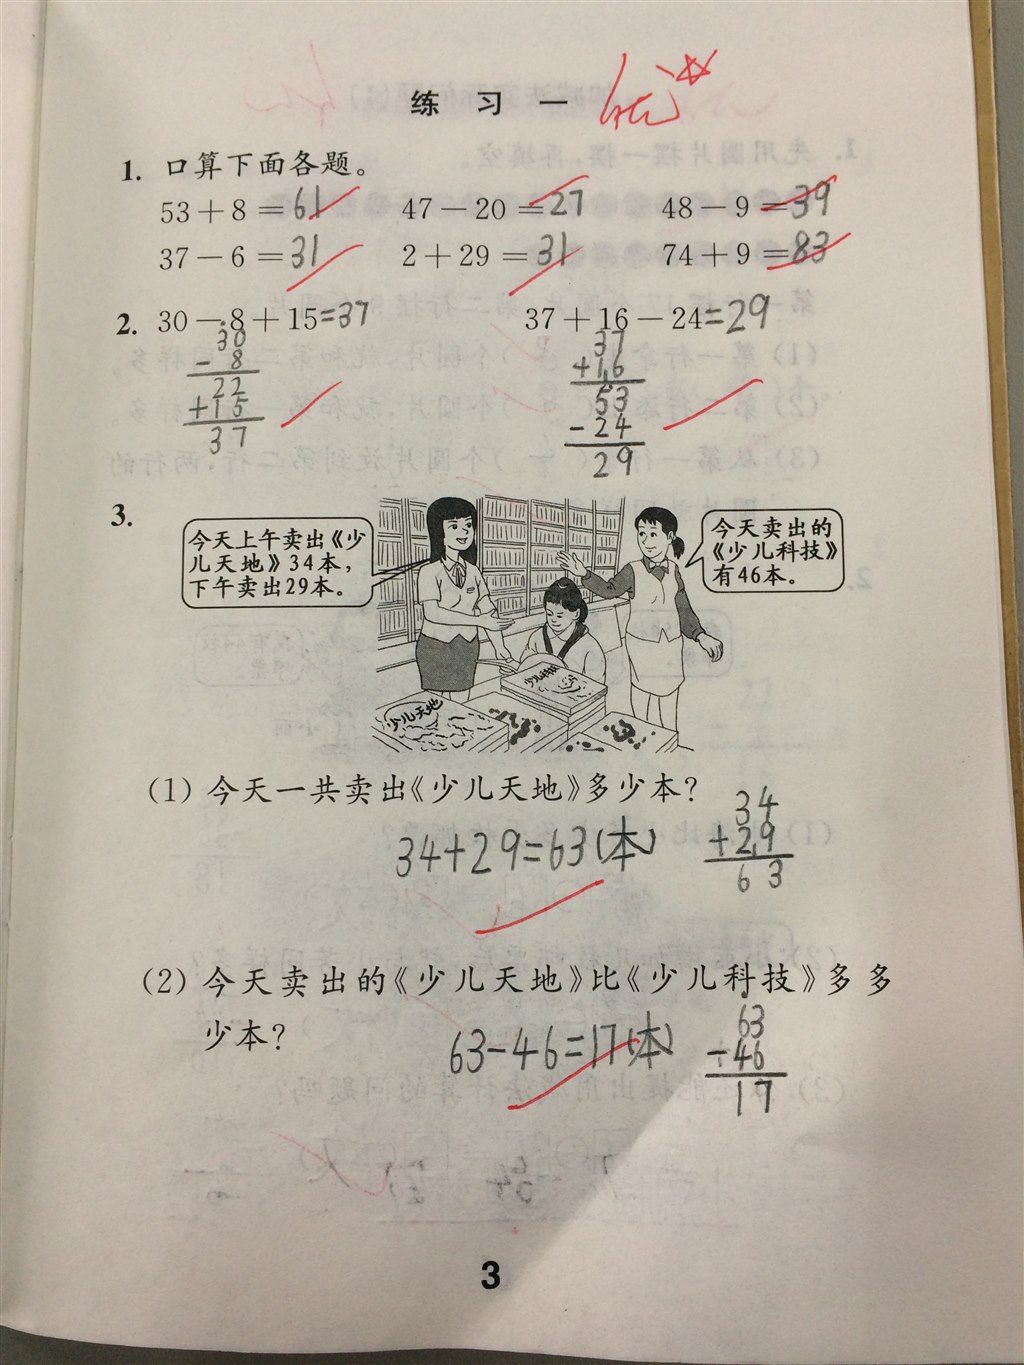 练 习 一 优☆
1. 口算下面各题。
53+8=61 47-20=27 48-9=39
37-6=31 2+29=31 74+9=83
2. 30-8+15=37 37+16-24=29
30 37
- 8 +16
22 53
+15 -24
37 29
3.
今天上午卖出《少
儿天地》34本，
下午卖出29本。
今天卖出的
《少儿科技》
有46本。
少儿科技
少儿天地
(1) 今天一共卖出《少儿天地》多少本?
34+29=63(本)
34
+29
63
(2) 今天卖出的《少儿天地》比《少儿科技》多多
少本?
63-46=17(本)
63
-46
17
3